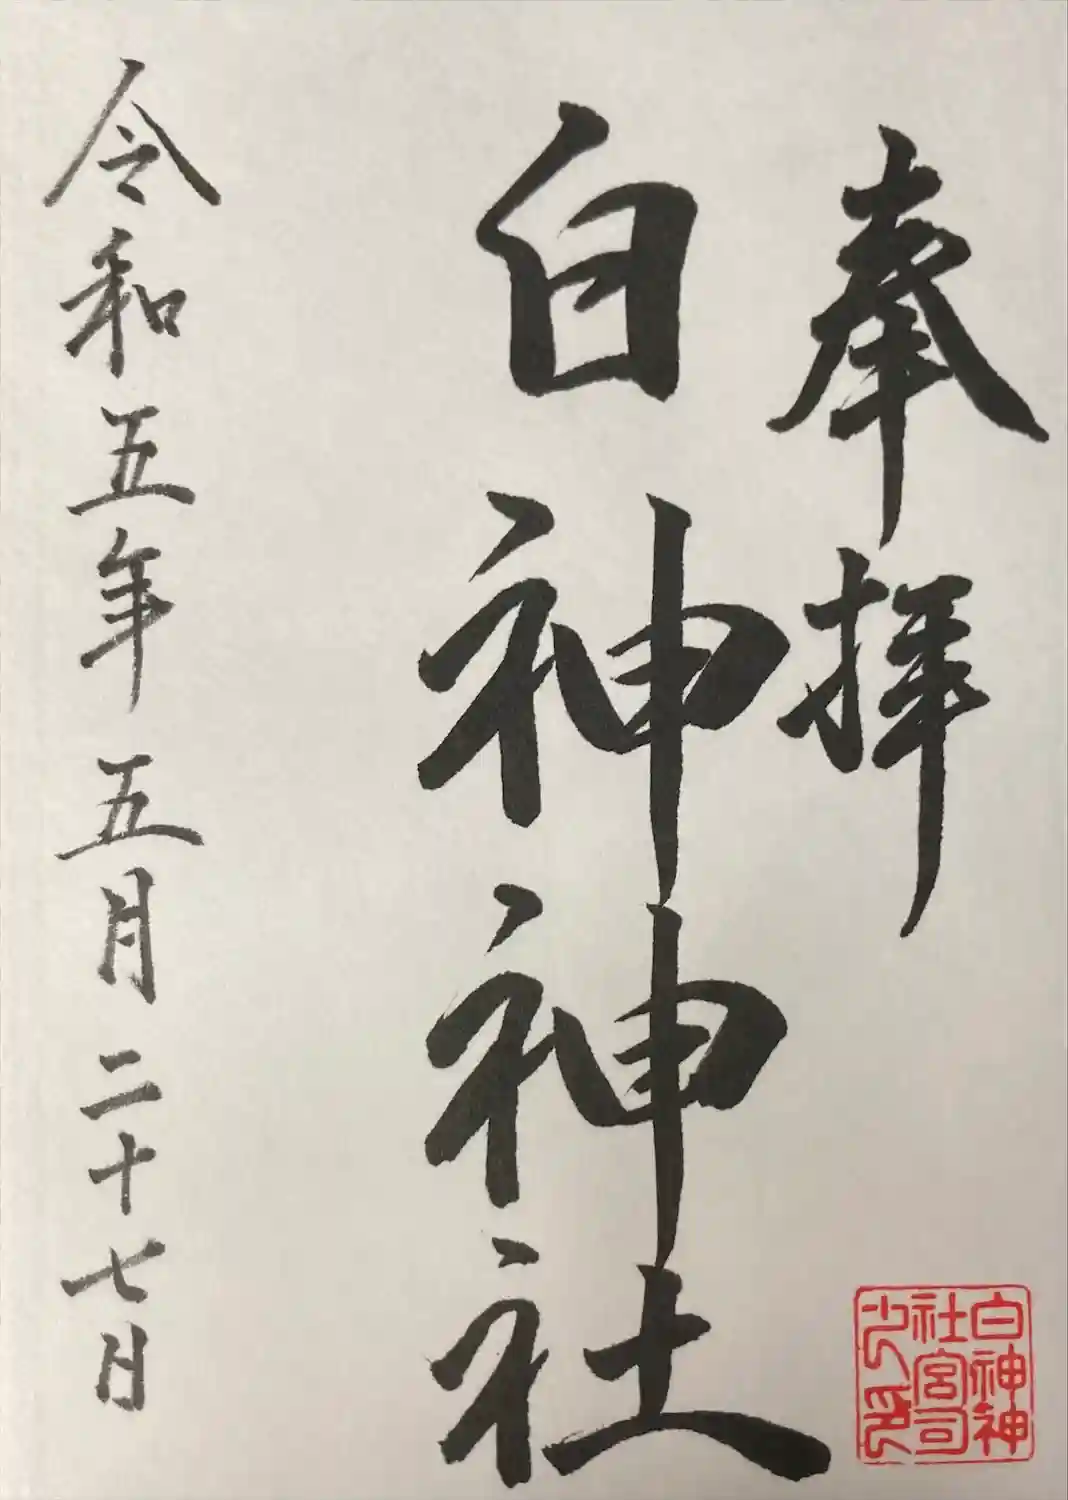 奉拝
白神神社
令和五年 五月二十七日
白神神
社宮司
之印